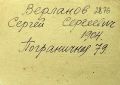 Верланов 2876
Сергей Сергеевич
1904
Пограничную 79.